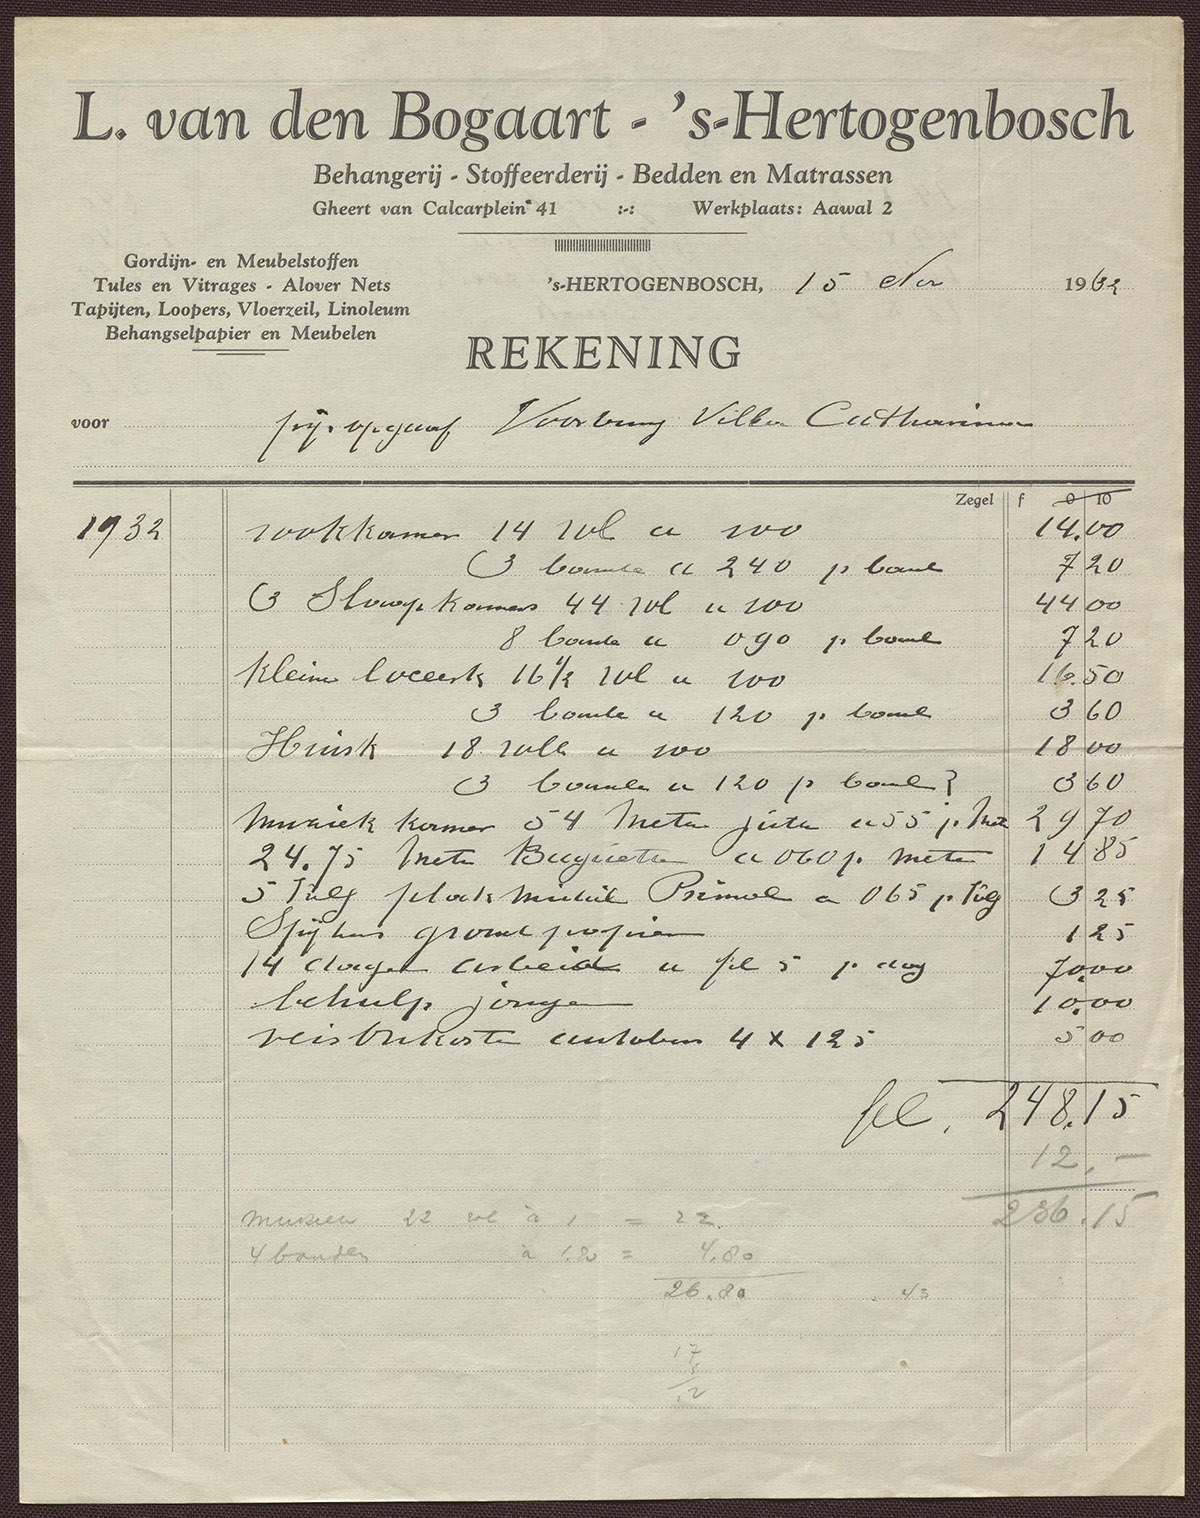 L. van den Bogaart - 's-Hertogenbosch
Behangerij - Stoffeerderij - Bedden en Matrassen
Gheert van Calcarplein 41 :-: Werkplaats: Aawal 2
Gordijn- en Meubelstoffen
Tules en Vitrages - Alover Nets
Tapijten, Loopers, Vloerzeil, Linoleum
Behangselpapier en Meubelen
's-HERTOGENBOSCH, 15 Nov 1932
REKENING
voor prijsopgaaf Voorburg Villa Catharina
Zegel f 0 10
1932 rookkamer 14 rol a 100 14.00
3 banden a 240 p band 7 20
3 Slaapkamers 44 rol a 100 44 00
8 banden a 090 p band 7 20
kleine 16½ rol a 100 16.50
3 banden a 120 p band 3 60
18 rolle a 100 18 00
3 banden a 120 p band 3 60
Muziek kamer 54 Meter jute a 55 p. Met 29 70
24.75 Meter Baguette a 060 p. meter 14 85
5 plak middel a 065 p 3 25
Spijkers grond papier 1 25
14 dagen arbeid a fl 5 p dag 70.00
behulp jongen 10.00
reis onkosten autobus 4 x 125 5 00
fl. 248.15
12.-
236.15
muziek 22 rol à 1 = 22.
4 banden à 1.20 = 4.80
26.80
17